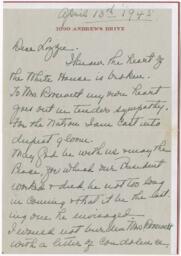 April 13th 1945
1090 ANDREWS DRIVE
Dear Lizzie:
I know the heart of
the White House is broken.
To Mrs Roosevelt my own heart
goes out in tender sympathy.
For the Nation I am cast into
deepest gloom.
May God be with us may the
Peace, for which our President
worked & died be not too long
in coming & that it be the last-
ing one he envisaged.
I would not burden Mrs Roosevelt
with a letter of condolence,